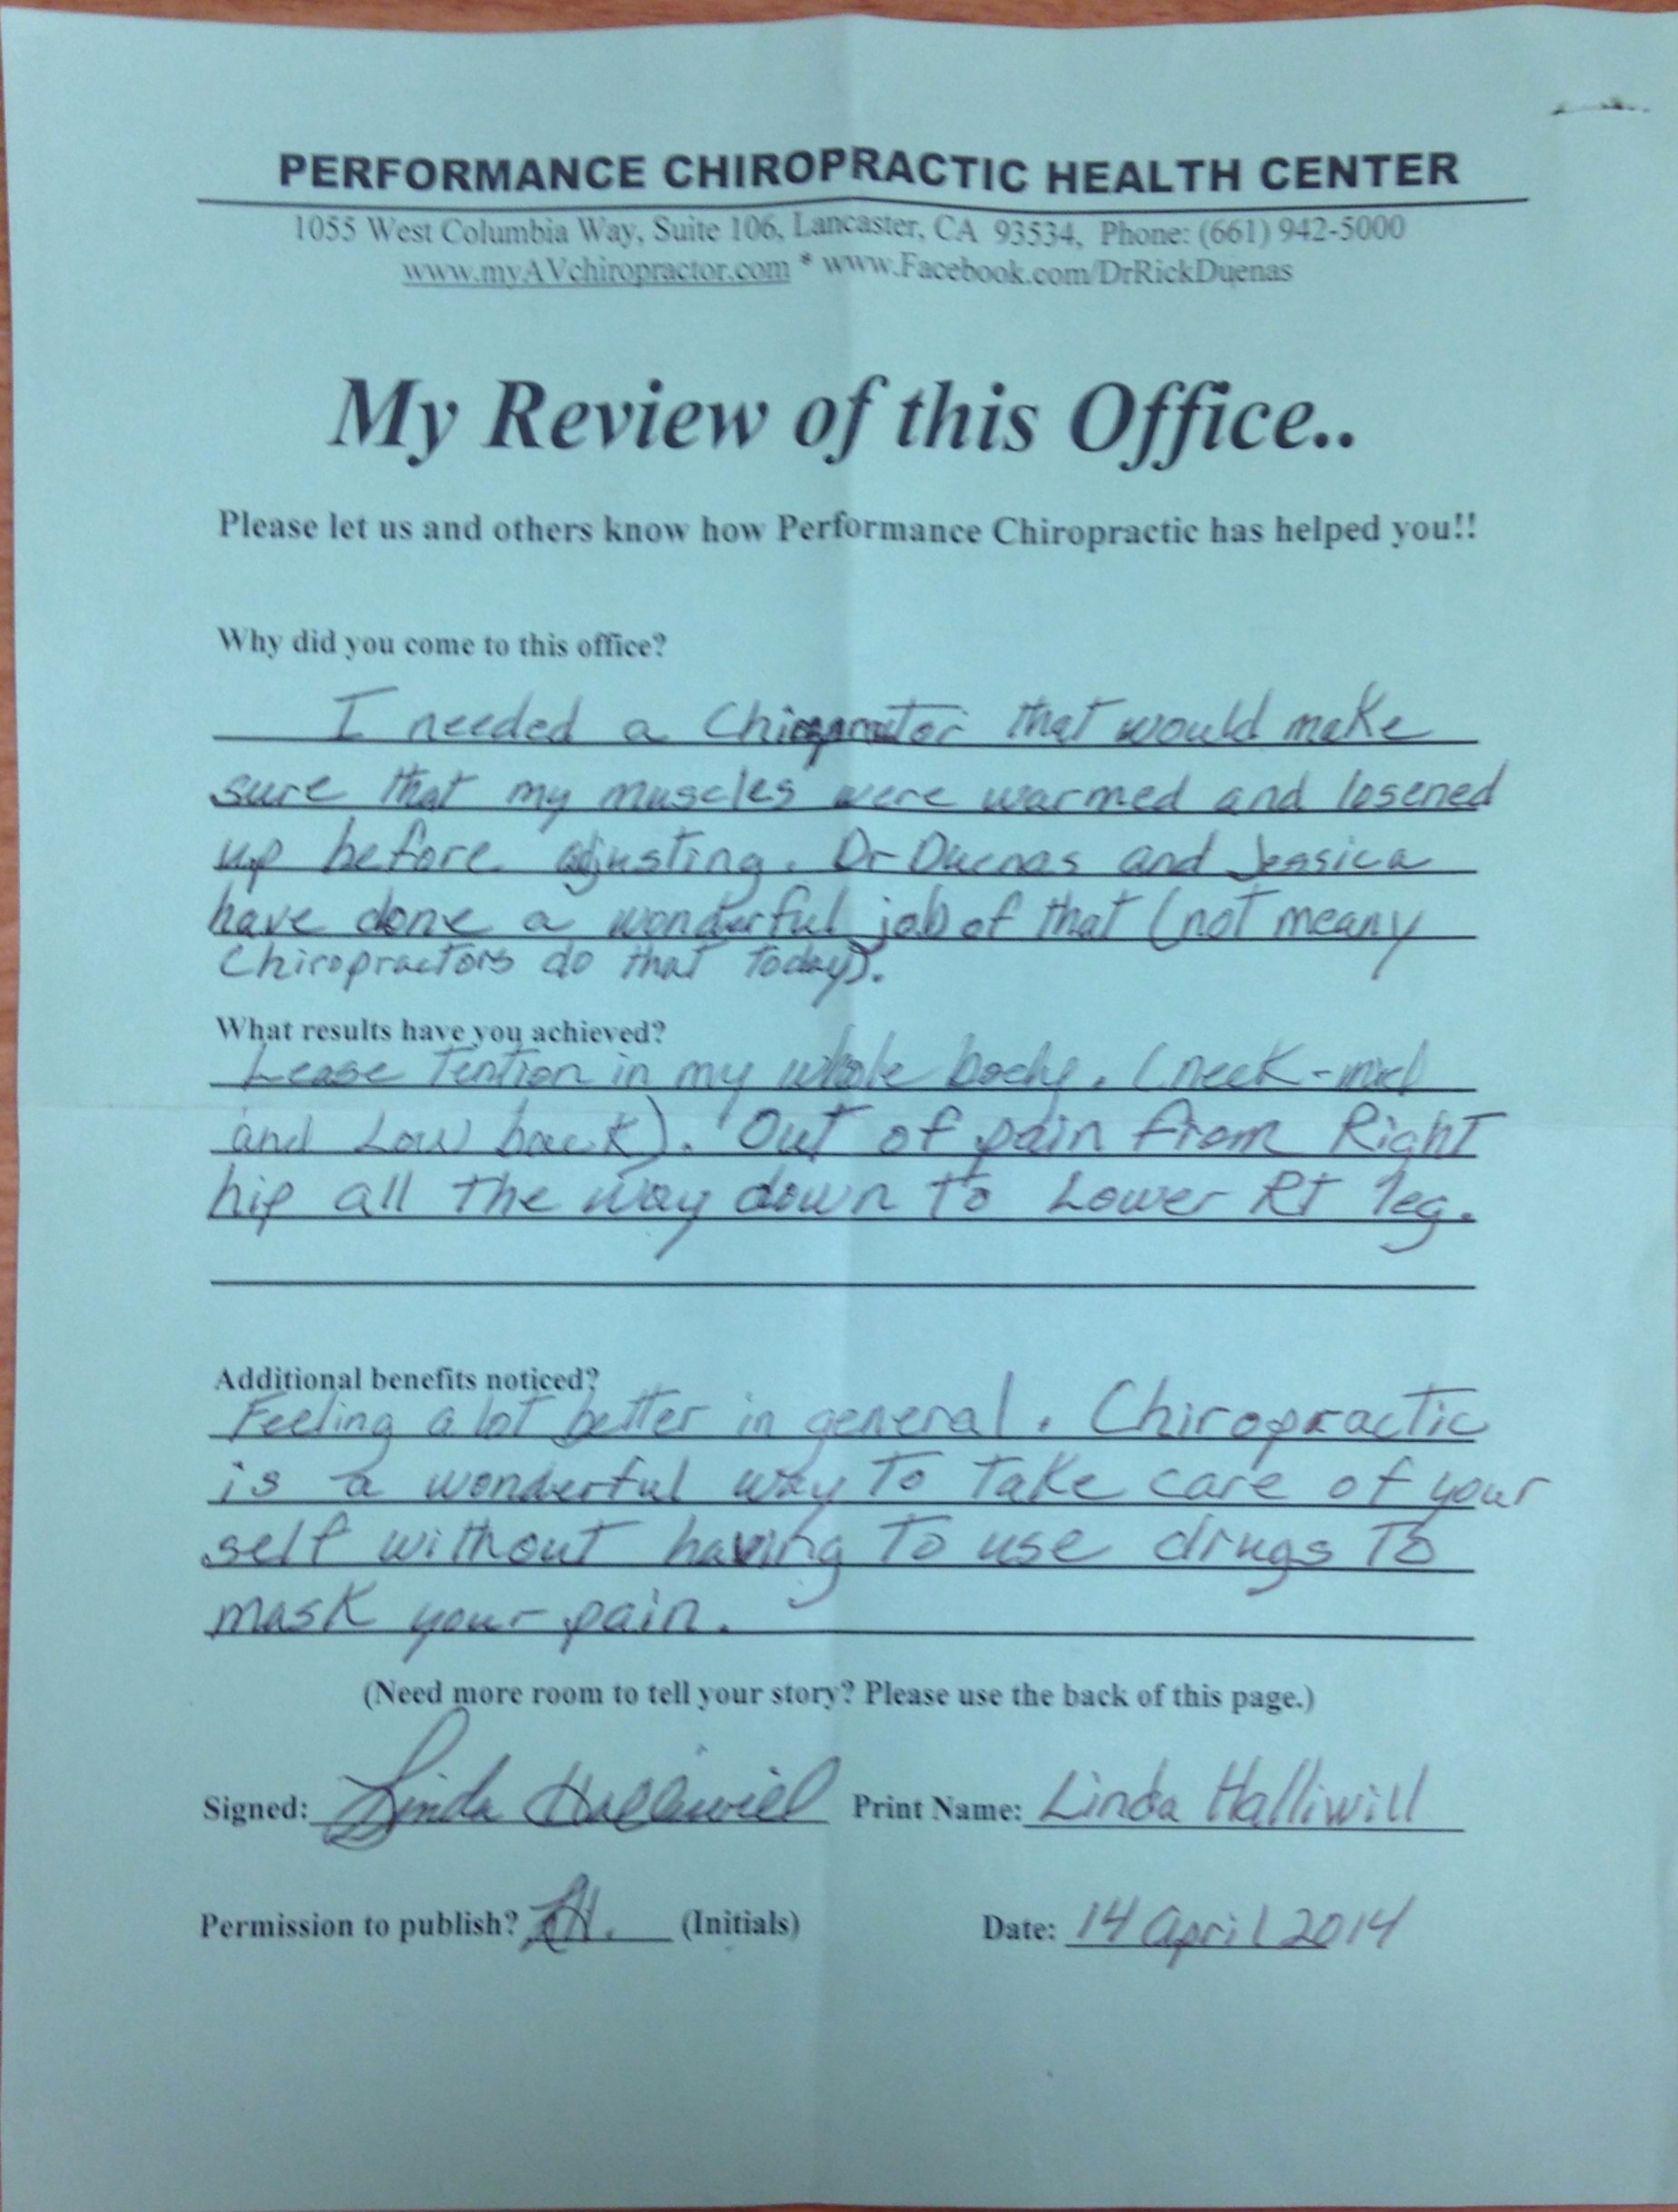 PERFORMANCE CHIROPRACTIC HEALTH CENTER
1055 West Columbia Way, Suite 106, Lancaster, CA 93534, Phone: (661) 942-5000
www.myAVchiropractor.com * www.Facebook.com/DrRickDuenas
My Review of this Office..
Please let us and others know how Performance Chiropractic has helped you!!
Why did you come to this office?
I needed a Chiropractor that would make
sure that my muscles were warmed and losened
up before adjusting. Dr Duenas and Jessica
have done a wonderful job of that (not meany
Chiropractors do that today).
What results have you achieved?
Lease Tention in my whole body. (neck-mid
and Low back). Out of pain from Right
hip all the way down to Lower Rt leg.
Additional benefits noticed?
Feeling a lot better in general. Chiropractic
is a wonderful way to take care of your
self without having to use drugs to
mask your pain.
(Need more room to tell your story? Please use the back of this page.)
Signed: Linda Halliwill Print Name: Linda Halliwill
Permission to publish? LH. (Initials) Date: 14 April 2014